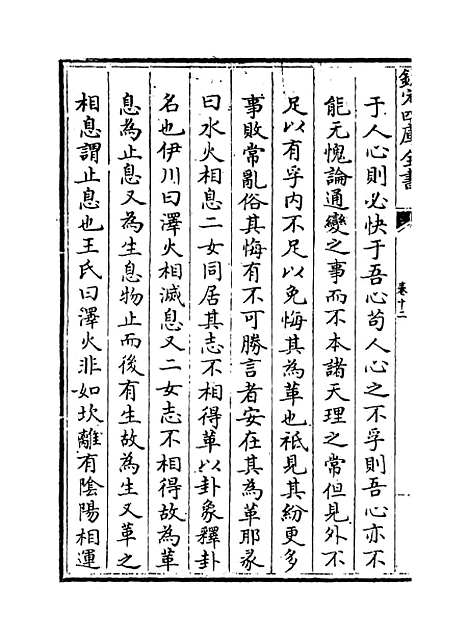 欽定四庫全書
卷十二
于人心則必快于吾心苟人心之不孚則吾心亦不
能无愧論通變之事而不本諸天理之常但見外不
足以有孚内不足以免悔其為革也祗見其紛更多
事敗常亂俗其悔有不可勝言者安在其為革耶彖
曰水火相息二女同居其志不相得革以卦象釋卦
名也伊川曰澤火相滅息又二女志不相得故為革
息為止息又為生息物止而後有生故為生又革之
相息謂止息也王氏曰澤火非如坎離有陰陽相運